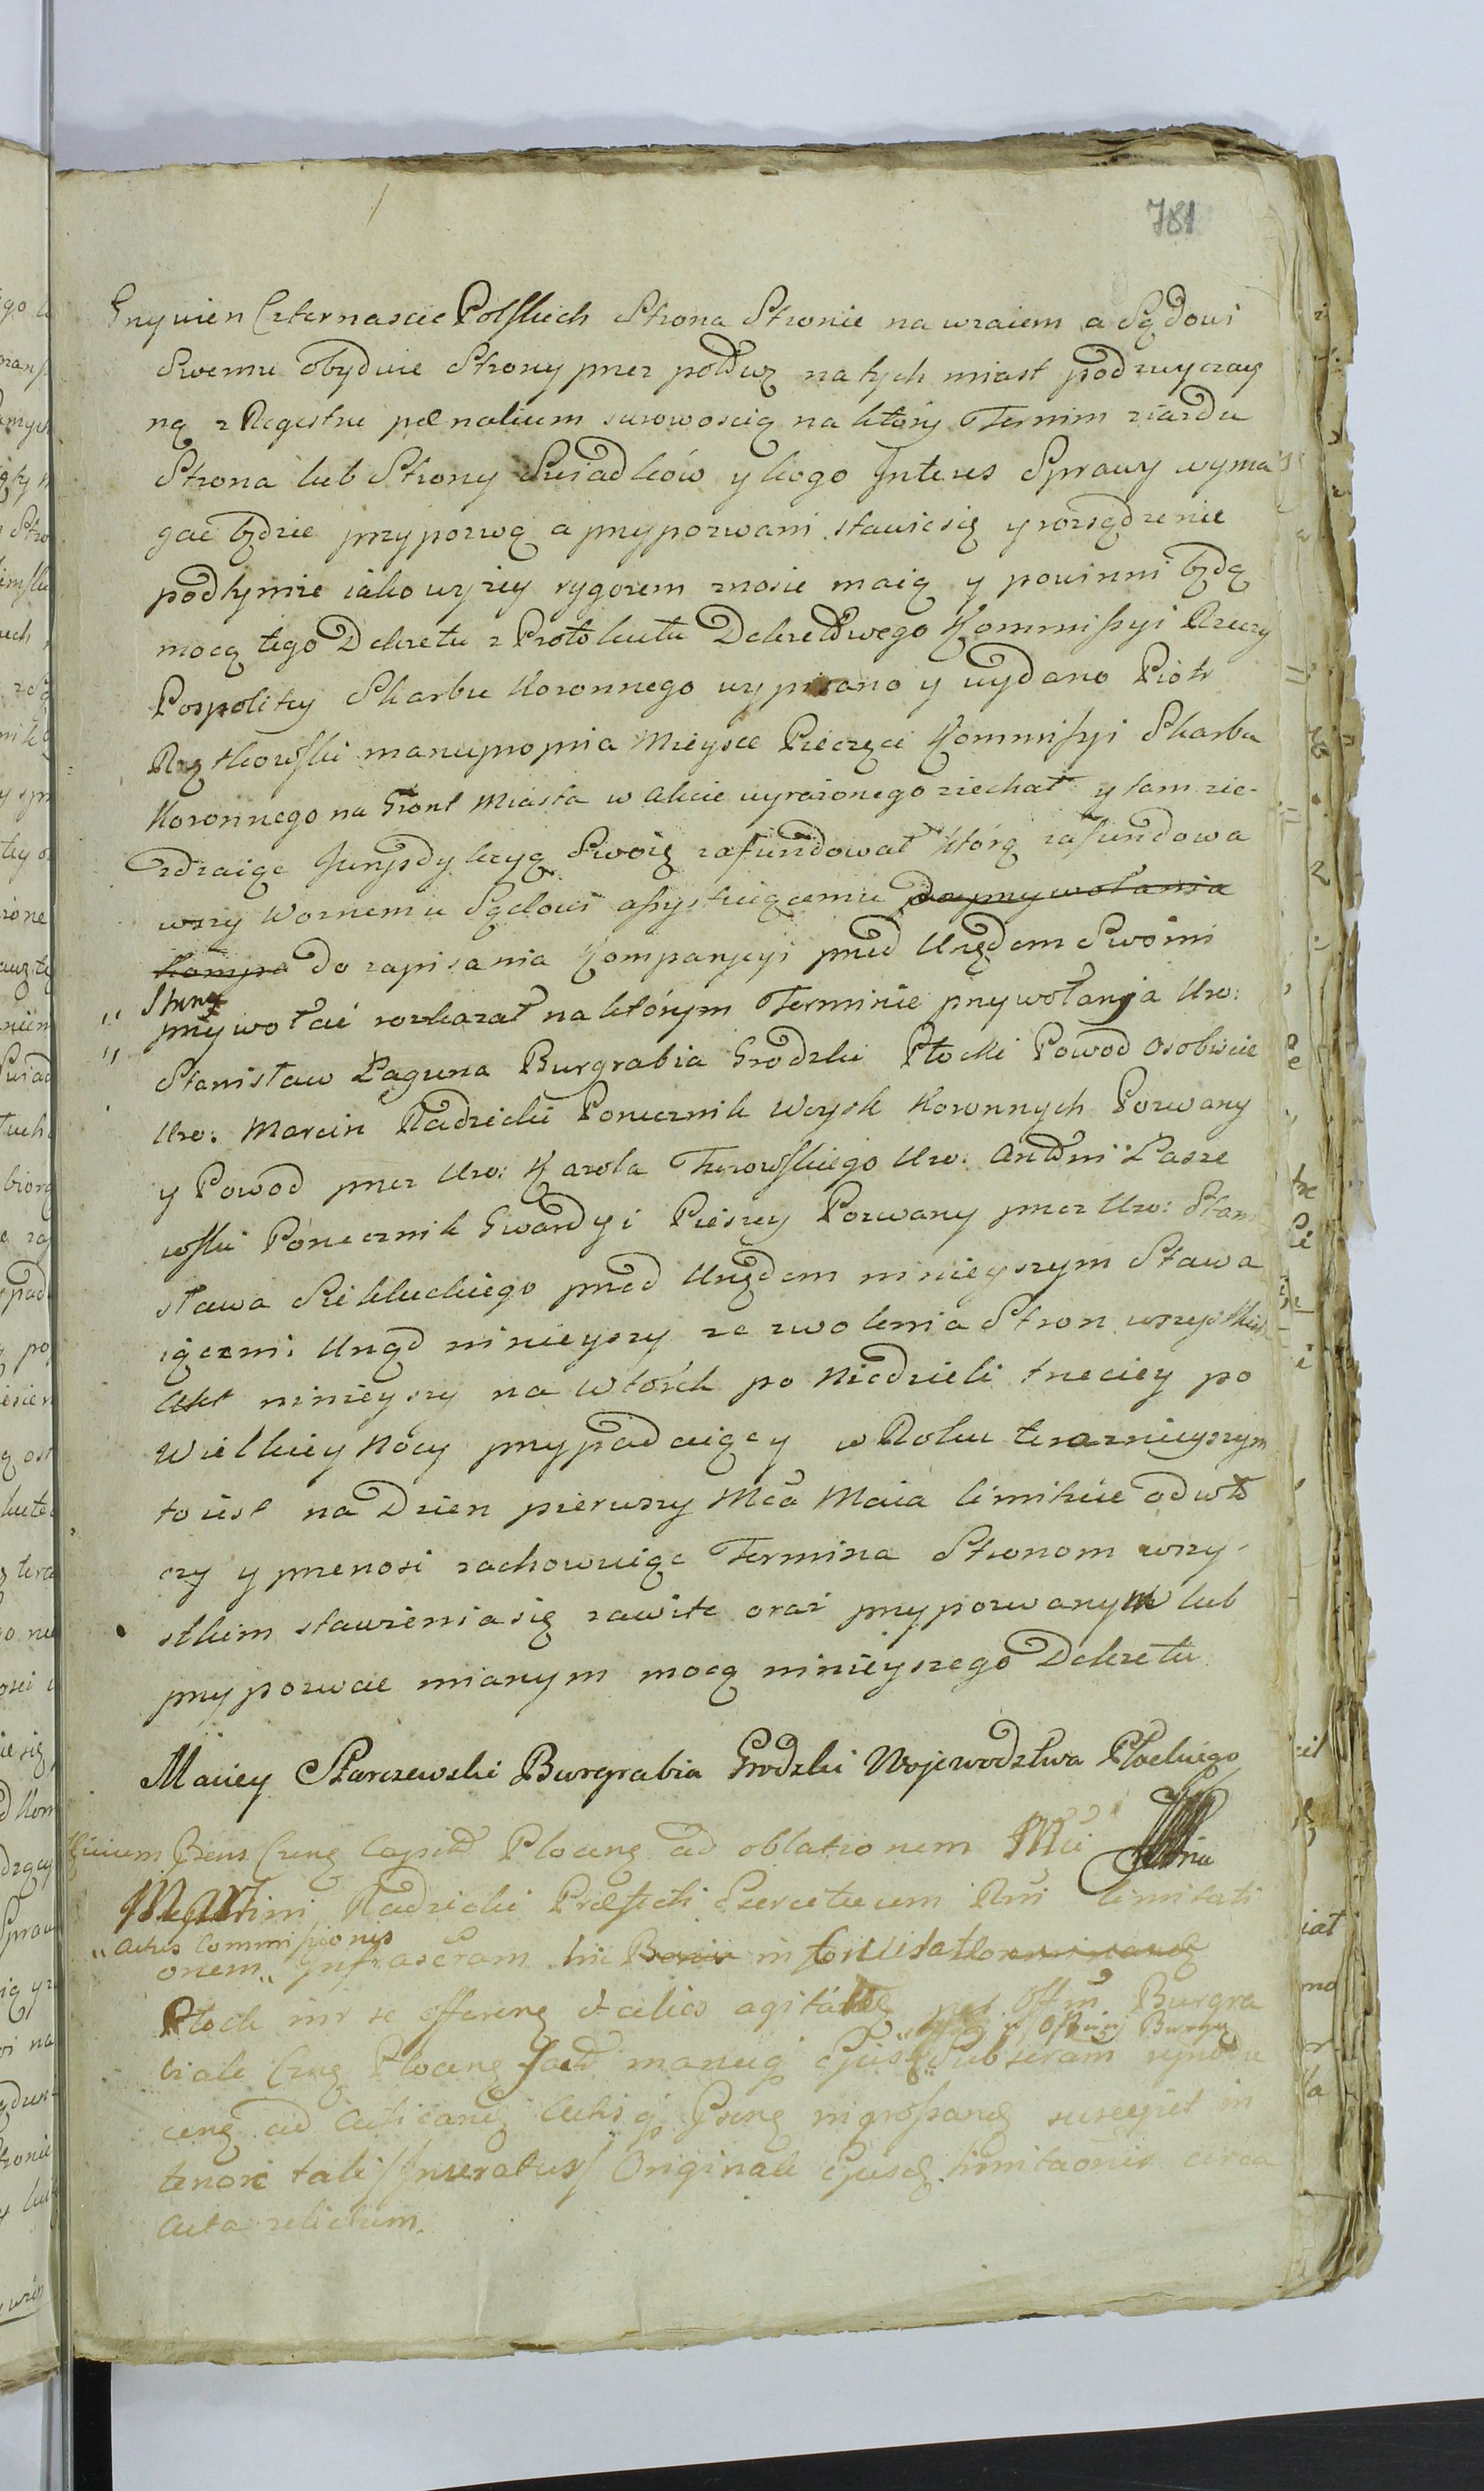 781
Grzywien Czternascie Polskich Strona Stronie na wzaiem a Sądowi
Swemu obydwie Strony przez połowę natychmiast pod zwyczay
ną z Regestru pœnalium surowoscią na który Termin ziazdu
Strona lub Strony Swiadków y kogo Interes Sprawy wyma
gać będzie przypozwą a przypozwani stawić się y rozsądzenie
pod tymże iako wyżey rygorem znosić maią y powinni będą
mocą tego Dekretu z Protokułu Dekretowego Kommissyi Rzeczy
Pospolitey Skarbu Koronnego wypisano y wydano Piotr
manu propria Mieysce Pieczęci Kommissyi Skarbu
Koronnego na Gront Miasta w Akcie wyrażonego ziechał y tam zie-
zdzaiąc Juryzdykcyą Swoię zafundował którą zafundowa
wszy Woznemu Sądowi assystuiącemu do przywołania
Kompa do zapisania Kompanycyi przed Urzędem Swoim
" Strony
" przywołać rozkazał na którym Terminie przywołania Uro:
Stanisław Łaguna Burgrabia Grodzki Płocki Powod osobiscie
Uro: Marcin Radzicki Porucznik Woysk Koronnych Pozwany
y Powod przez Uro: Karola Turowskiego Uro: Antoni Łasze
wski Porucznik Gwardyi Pieszey Pozwany przez Uro: Stani
sława Sikluckiego przed Urzędem ninieyszym Stawa
iącemi Urząd ninieyszy ze zwolenia Stron wszystkich
Akt ninieyszy na Wtorek po Niedzieli trzeciey po
Wielkiey Nocy przypadaiący w Roku teraznieyszym
to iest na Dzien pierwszy Mca Maia limituie odwło
czy y przenosi zachowuiąc Termina Stronom wszy-
stkim stawienia się zawite oraz przypozwanym lub
przypozwać mianym mocą ninieyszego Dekretu
Maciey Starczewski Burgrabia Grodzki Wojewodztwa Płockiego
ad oblationem
Martini Radzicki Exercituum limitati
" Actus Commissionis
onem " Infrascram hic in Civitate
Plock inr se
Burgra
biale manuq Subscram
ad Acticand
tenore tali /Inseratur/ Originale limitaonis circa
Acta relictum.